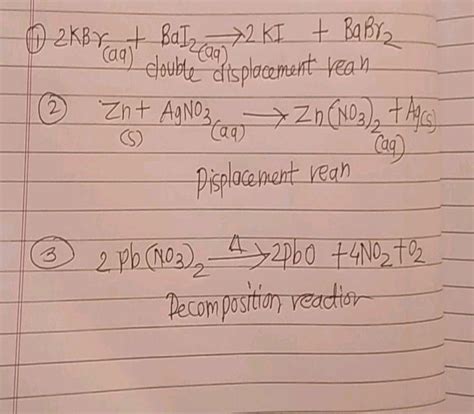 ① 2KBr(aq) + BaI2(aq) → 2KI + BaBr2
double displacement rean
② Zn(s) + AgNO3(aq) → Zn(NO3)2(aq) + Ag(s)
Displacement rean
③ 2Pb(NO3)2 —Δ→ 2PbO + 4NO2 + O2
Decomposition reaction